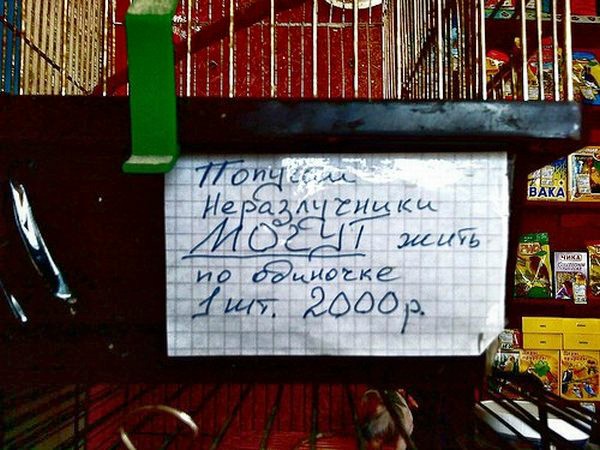 Попугаи
Неразлучники
МОГУТ жить
по одиночке
1 шт. 2000 р.
ВАКА
ЧИКА